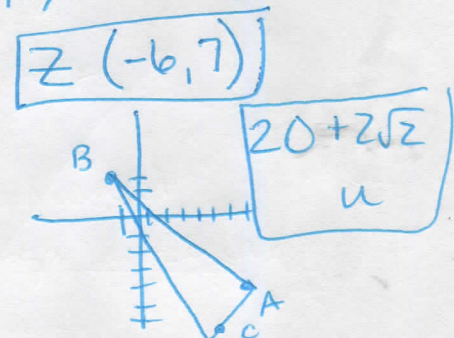 Z (-6,7)
20 + 2√2
u
B
A
C